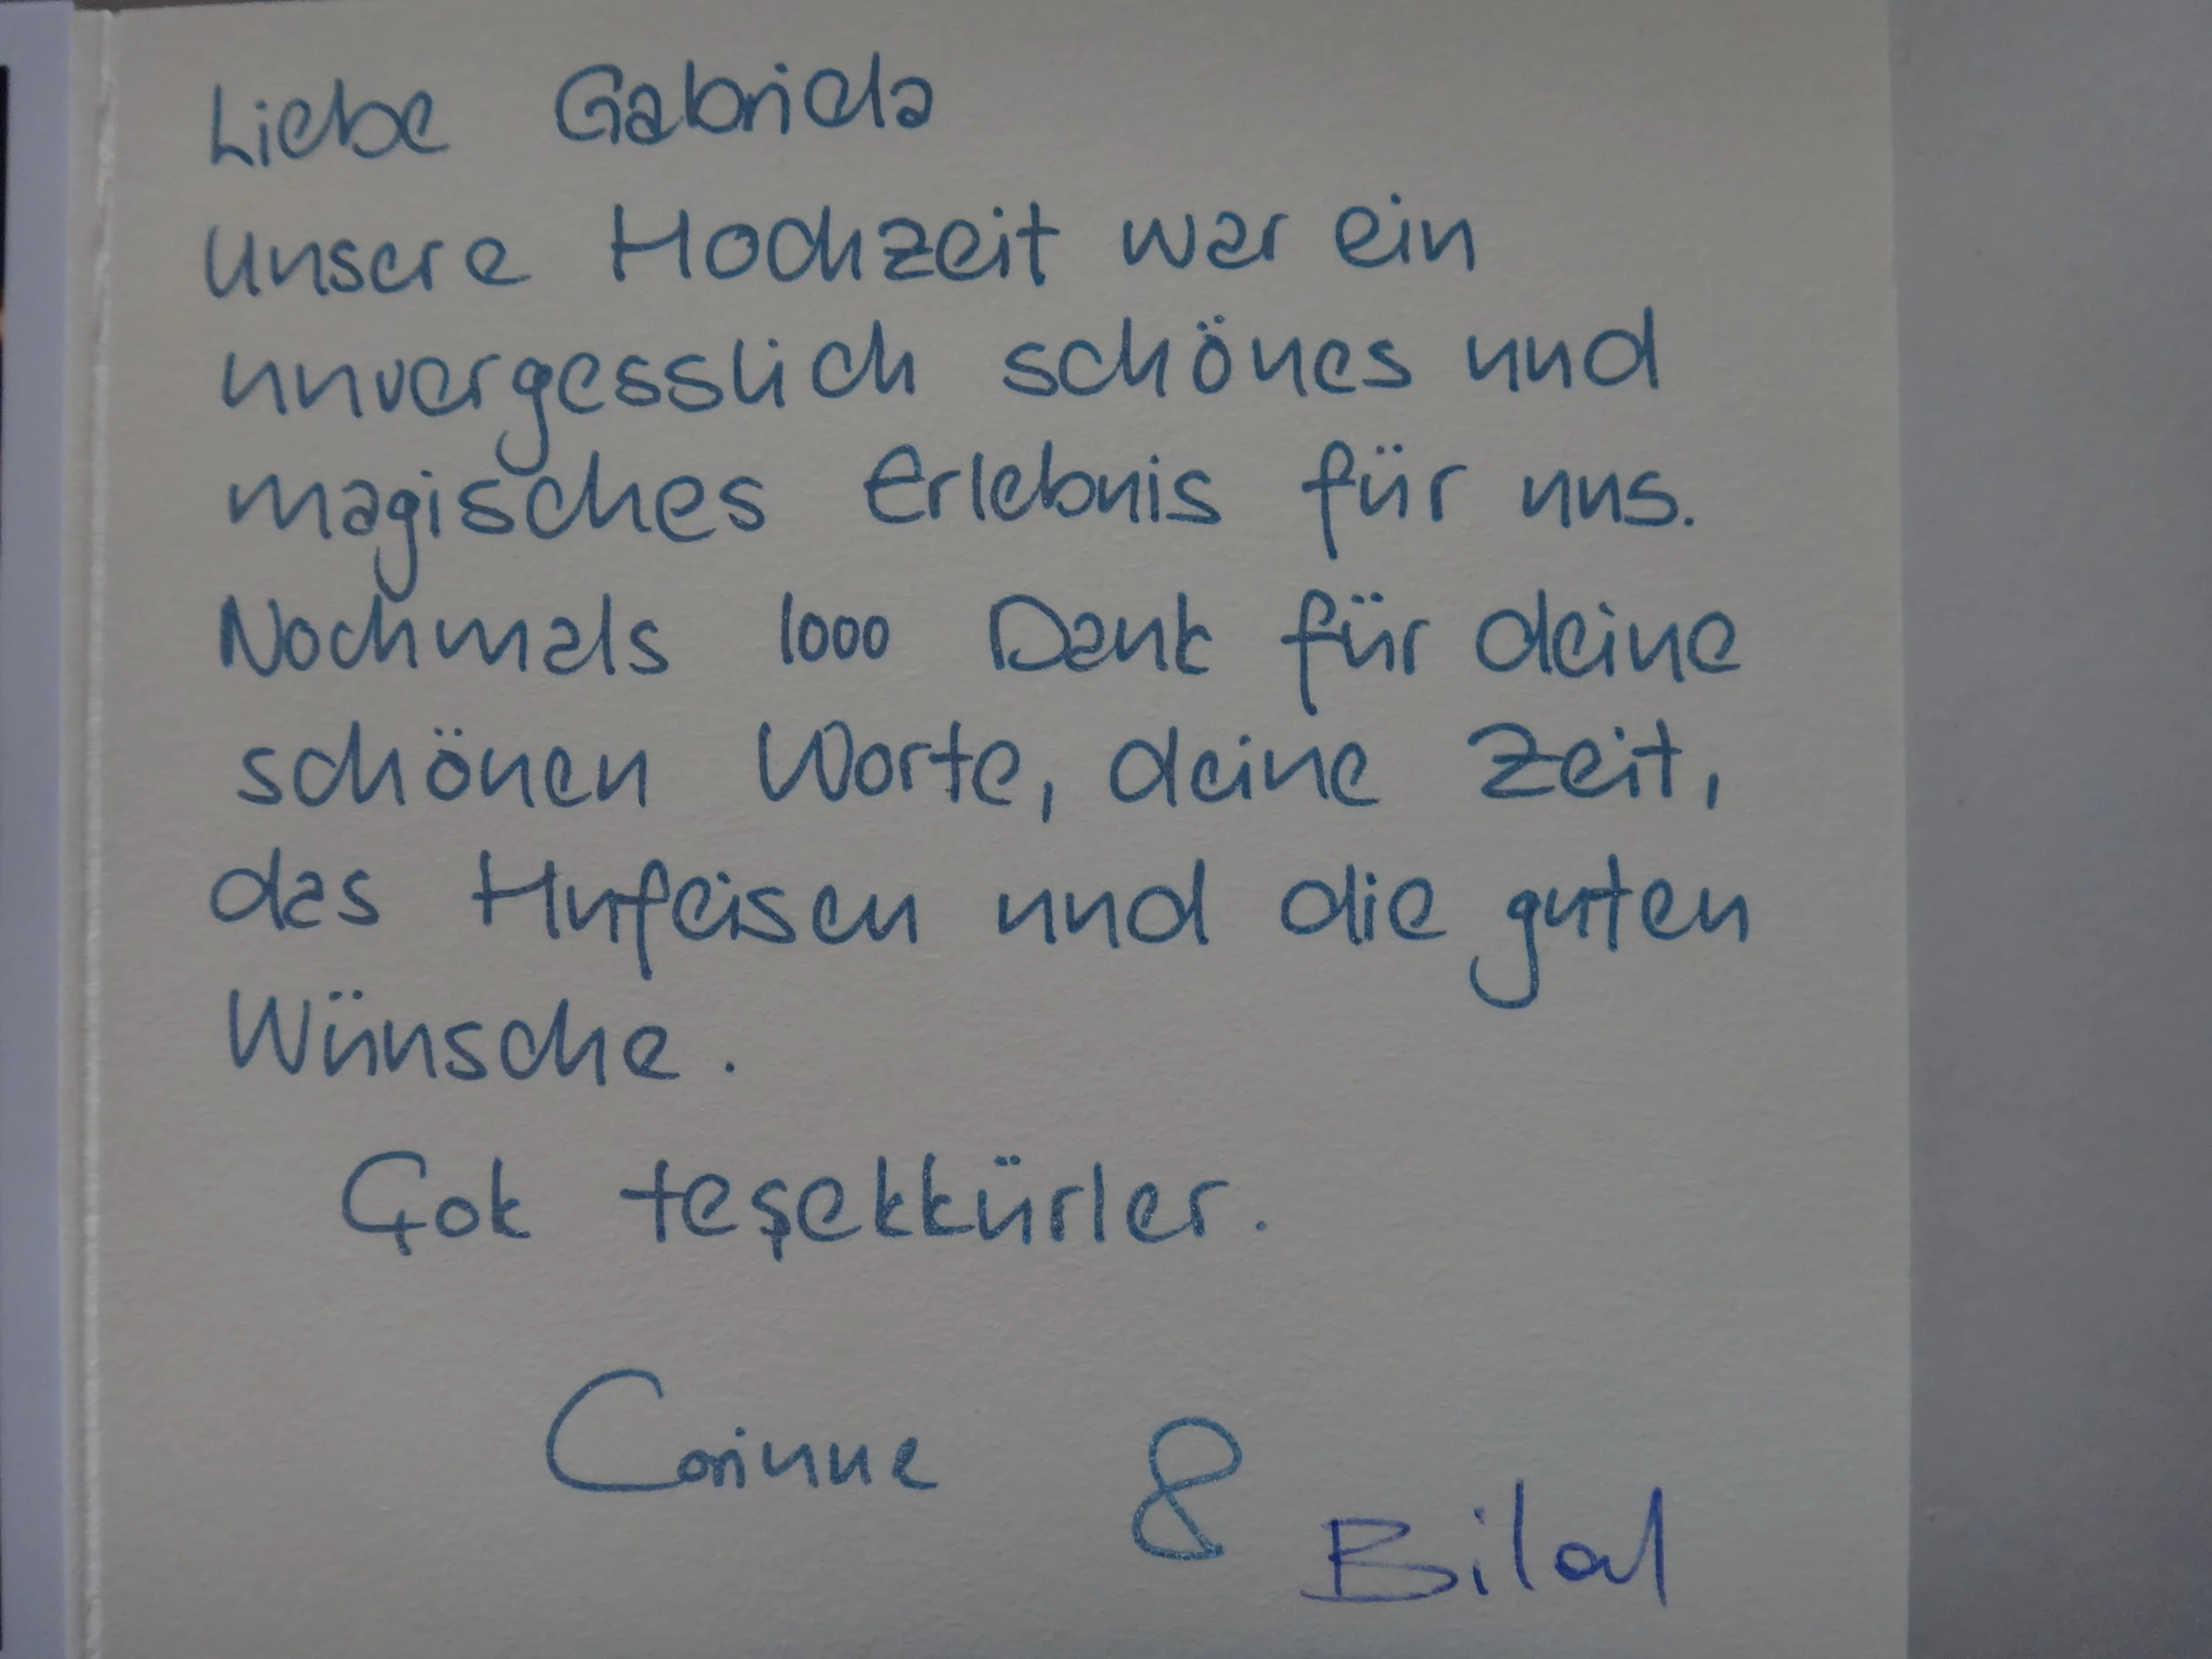 Liebe Gabriela
Unsere Hochzeit war ein
unvergesslich schönes und
magisches Erlebnis für uns.
Nochmals 1000 Dank für deine
schönen Worte, deine Zeit,
das Hufeisen und die guten
Wünsche.
Çok teşekkürler.
Corinne & Bilal